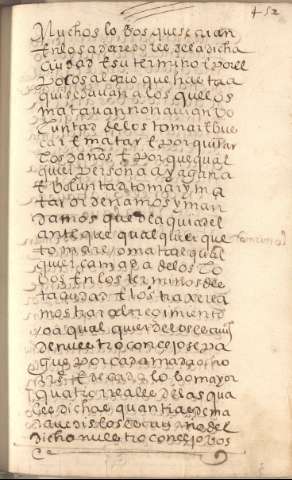 452
Muchos lobos que se crian
En los de la dicha
Ciudad E su termino E por el
que hasta a
qui se davan a los que los
matavan non avian vo
luntad de los tomar E bus
car E matar E por quitar
los daños E porque qual
quier persona aya gana
E voluntad tomar y ma
tar ordenamos y man
damos que de aqui adel
ante que qualquier que
tomare o matare qual
quier camada de los lo
bos En los terminos de es
ta ciudad E los traxere a
mostrar al regimiento
o a qual quier de los
de nuestro conçejo se pa
gue por cada camada
E de cada lobo mayor
quatro reales de las qua
les dichas quantias
los
dicho nuestro conçejo vos